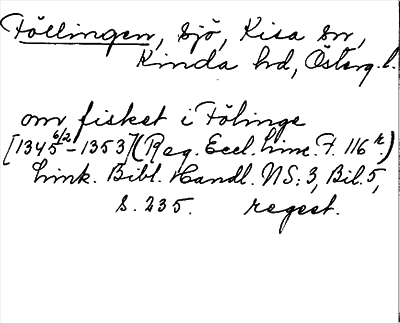 Föllingen, sjö, Kisa sn,
Kinda hd, Österg.l.
om fisket i Fölinge
[1345 6/2 - 1353] (Reg. Eccl. Linc. F. 116 r.)
Link. Bibl. Handl. NS: 3, Bil. 5,
s. 235. regest.